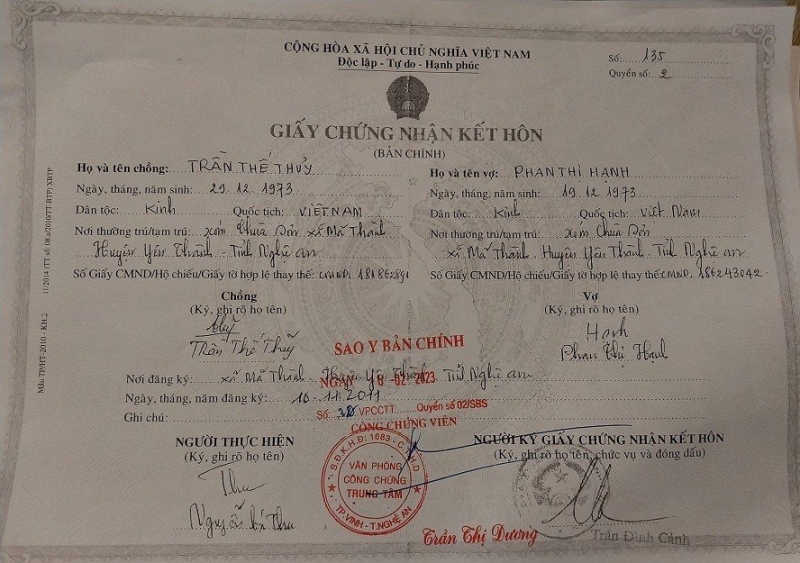 CỘNG HÒA XÃ HỘI CHỦ NGHĨA VIỆT NAM
Độc lập - Tự do - Hạnh phúc
Số: 135
Quyển số: 2
GIẤY CHỨNG NHẬN KẾT HÔN
(BẢN CHÍNH)
Họ và tên chồng: TRẦN THẾ THUỶ
Họ và tên vợ: PHAN THỊ HẠNH
Ngày, tháng, năm sinh: 29.12.1973
Ngày, tháng, năm sinh: 19.12.1973
Dân tộc: Kinh Quốc tịch: VIỆT NAM
Dân tộc: Kinh Quốc tịch: Việt Nam
Nơi thường trú/tạm trú: xóm Chùa Sơn xã Mã Thành
Nơi thường trú/tạm trú: xóm Chùa Sơn
Huyện Yên Thành - Tỉnh Nghệ an
xã Mã Thành. Huyện Yên Thành. Tỉnh Nghệ an
Số Giấy CMND/Hộ chiếu/Giấy tờ hợp lệ thay thế: CMND.
Số Giấy CMND/Hộ chiếu/Giấy tờ hợp lệ thay thế: CMND. 186243042
Chồng
(Ký, ghi rõ họ tên)
Vợ
(Ký, ghi rõ họ tên)
Thuỷ
Trần Thế Thuỷ
Hạnh
Phan Thị Hạnh
SAO Y BẢN CHÍNH
Nơi đăng ký: xã Mã Thành. Huyện Yên Thành. Tỉnh Nghệ an
NGÀY 02-2023
Ngày, tháng, năm đăng ký: 10.11.2011
Ghi chú:
Số: VPCCTT Quyển số 02/SBS
CÔNG CHỨNG VIÊN
NGƯỜI THỰC HIỆN
(Ký, ghi rõ họ tên)
NGƯỜI KÝ GIẤY CHỨNG NHẬN KẾT HÔN
(Ký, ghi rõ họ tên, chức vụ và đóng dấu)
S.Đ.K.H.Đ: 1683 - C.T.H.D
VĂN PHÒNG
CÔNG CHỨNG
TRUNG TÂM
TP.VINH - T.NGHỆ AN
Thu
Trần Thị Dương
Trần Đình Cảnh
Mẫu TP/HT-2010 - KH.2